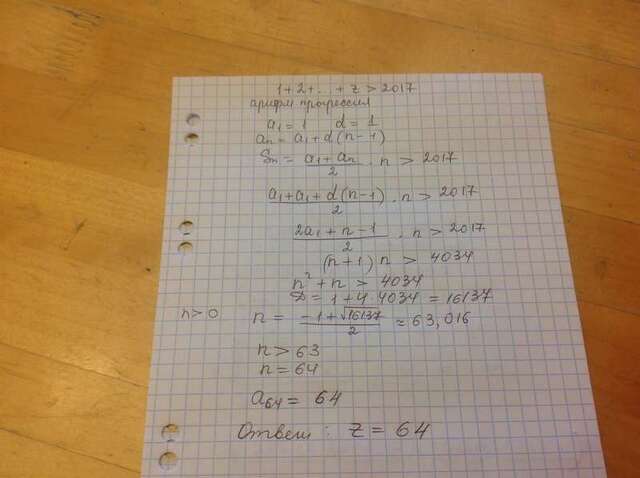 1+2+... + z > 2017
арифм прогрессия
a₁ = 1   d = 1
aₙ = a₁ + d(n-1)
Sₙ = (a₁ + aₙ)/2 · n > 2017
(a₁ + a₁ + d(n-1))/2 · n > 2017
(2a₁ + n - 1)/2 · n > 2017
(n+1) n > 4034
n² + n > 4034
D = 1 + 4·4034 = 16137
n>0   n = (-1+√16137)/2 ≈ 63,016
n > 63
n = 64
a₆₄ = 64
Ответ: z = 64